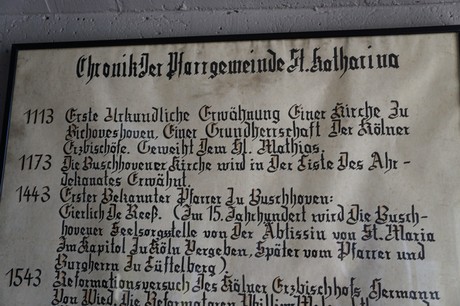 Chronik Der Pfarrgemeinde St. Katharina
1113 Erste Urkundliche Erwähnung Einer Kirche Zu
Bichoveshoven, Einer Grundherrschaft Der Kölner
Erzbischöfe. Geweiht Dem Hl. Mathias.
1173 Die Buschhovener Kirche wird in Der Liste Des Ahr-
dekanates Erwähnt.
1443 Erster Bekannter Pfarrer Zu Buschhoven:
Gierlich De Reeß. (Im 15. Jahrhundert wird Die Busch-
hovener Seelsorgsstelle von Der Äbtissin von St. Maria
Im Kapitol Zu Köln Vergeben, Später vom Pfarrer und
Burgherrn Zu Lüftelberg).
1543 Reformationsversuch Des Kölner Erzbischofs, Hermann
Von Wied. Die Reformatoren